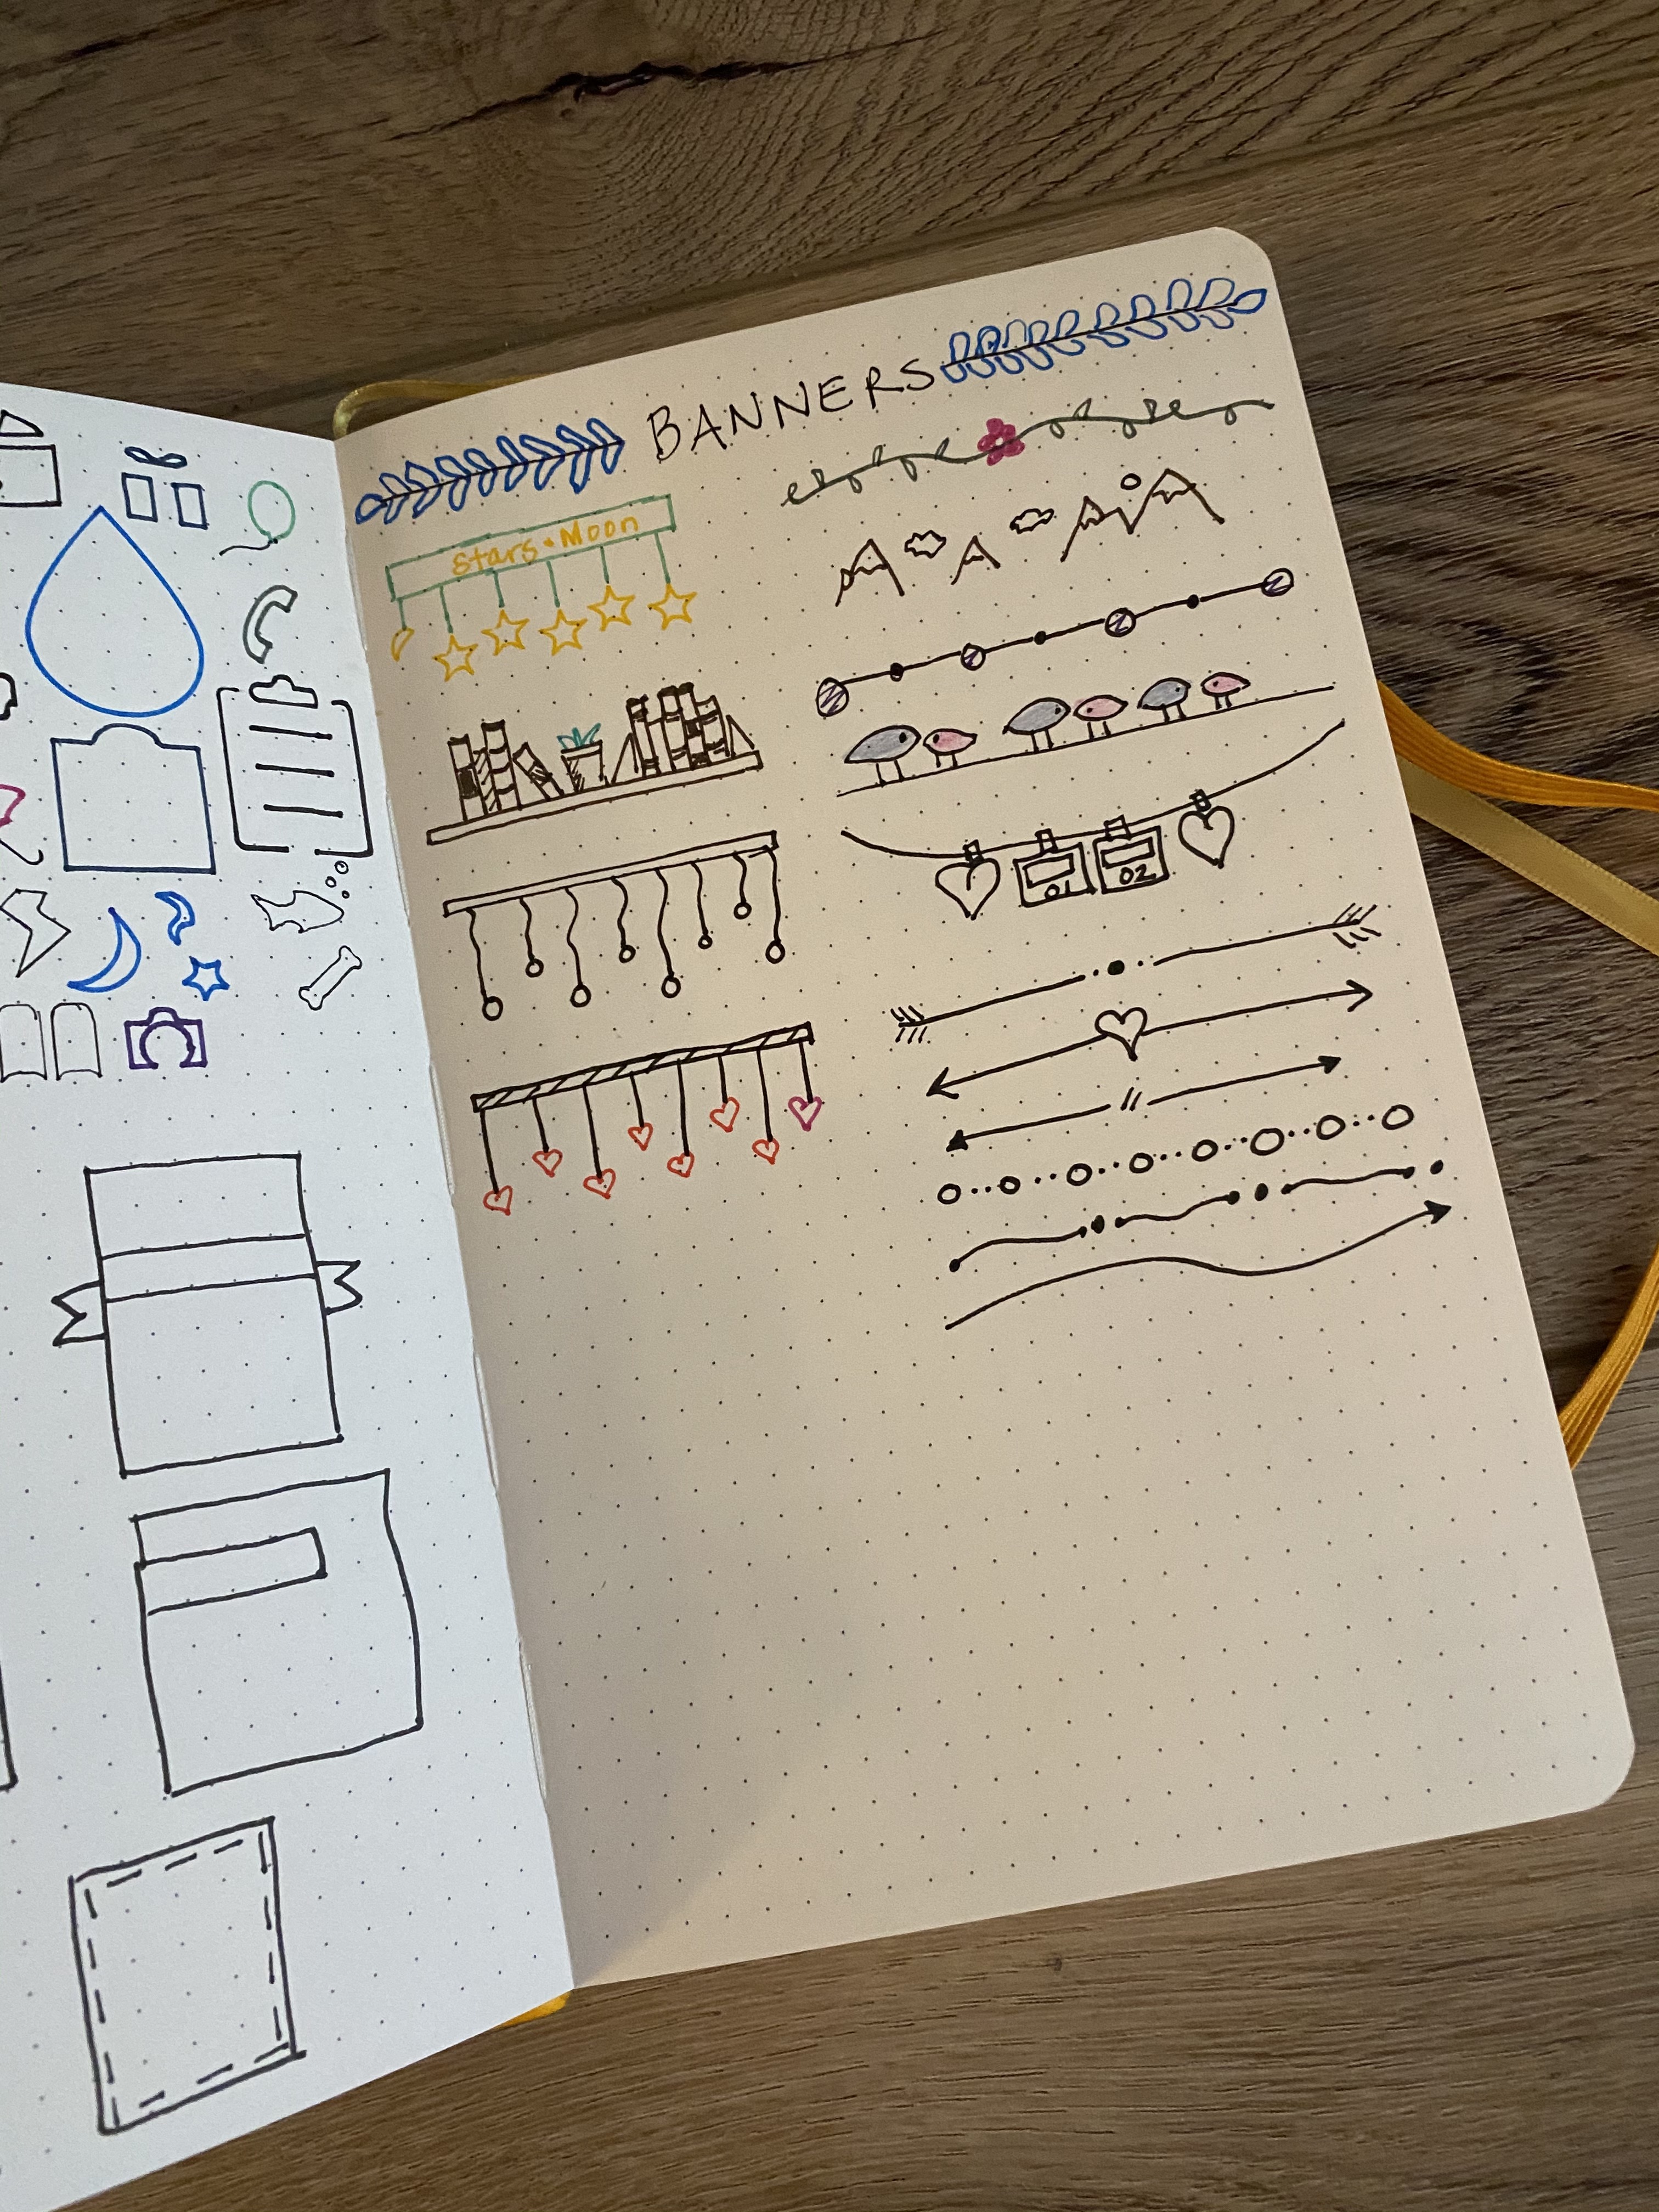 BANNERS
Stars • Moon
01
02